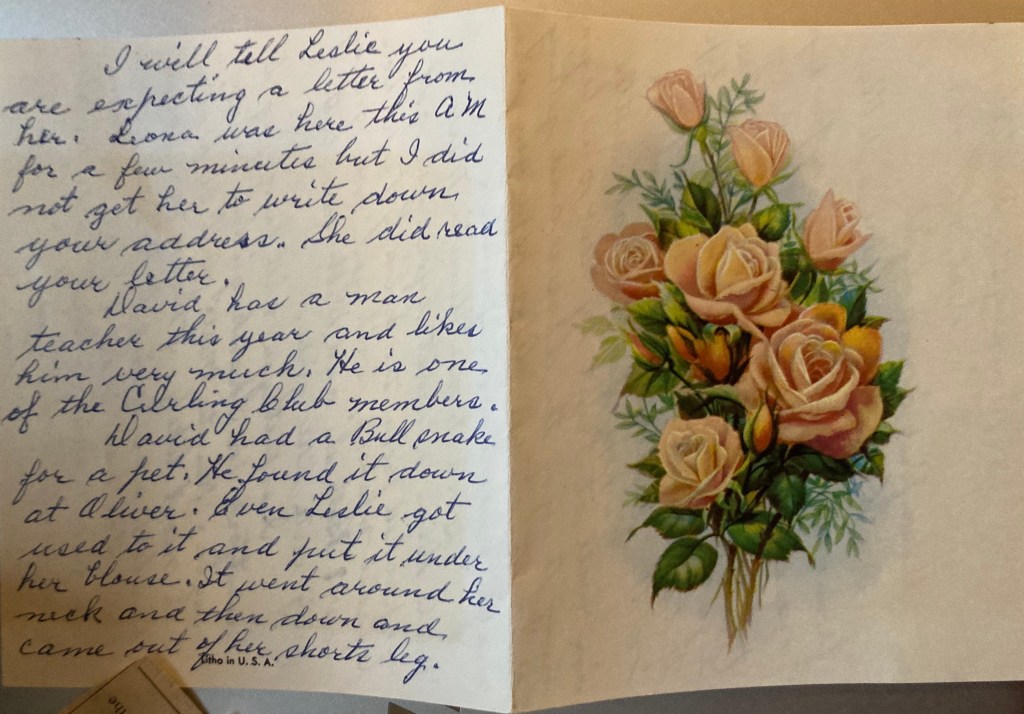 I will tell Leslie you
are expecting a letter from
her. Leona was here this AM
for a few minutes but I did
not get her to write down
your address. She did read
your letter.
David has a man
teacher this year and likes
him very much. He is one
of the Curling Club members.
David had a Bull snake
for a pet. He found it down
at Oliver. Even Leslie got
used to it and put it under
her blouse. It went around her
neck and then down and
came out of her shorts leg.
Litho in U. S. A.